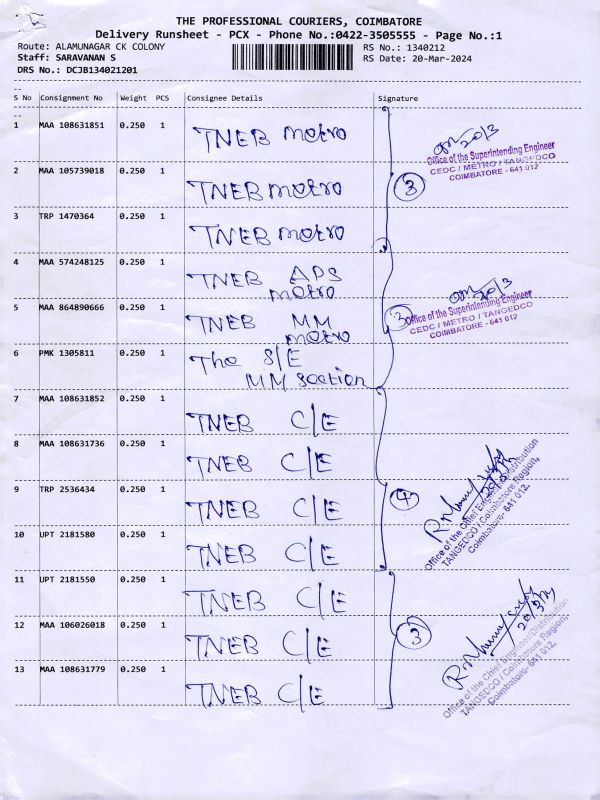 THE PROFESSIONAL COURIERS, COIMBATORE
Delivery Runsheet - PCX - Phone No.:0422-3505555 - Page No.:1
Route: ALAMUNAGAR CK COLONY RS No.: 1340212
Staff: SARAVANAN S RS Date: 20-Mar-2024
DRS No.: DCJB134021201
S No Consignment No Weight PCS Consignee Details Signature
1 MAA 108631851 0.250 1 TNEB metro
20/3
Office of the Superintending Engineer
CEDC / METRO / TANGEDCO
COIMBATORE - 641 012
2 MAA 105739018 0.250 1 TNEB metro 3
3 TRP 1470364 0.250 1 TNEB metro
4 MAA 574248125 0.250 1 TNEB APS
metro
20/3
5 MAA 864890666 0.250 1 TNEB MM
metro
3 Office of the Superintending Engineer
CEDC / METRO / TANGEDCO
COIMBATORE - 641 012
6 PMK 1305811 0.250 1 The S/E
MM section
7 MAA 108631852 0.250 1 TNEB C/E
8 MAA 108631736 0.250 1 TNEB C/E
9 TRP 2536434 0.250 1 TNEB C/E 4
Office of the Chief Engineer/Distribution
TANGEDCO / Coimbatore Region,
Coimbatore- 641 012.
10 UPT 2181580 0.250 1 TNEB C/E
11 UPT 2181550 0.250 1 TNEB C/E
12 MAA 106026018 0.250 1 TNEB C/E 3
Office of the Chief Engineer/Distribution
TANGEDCO / Coimbatore Region,
Coimbatore- 641 012.
13 MAA 108631779 0.250 1 TNEB C/E